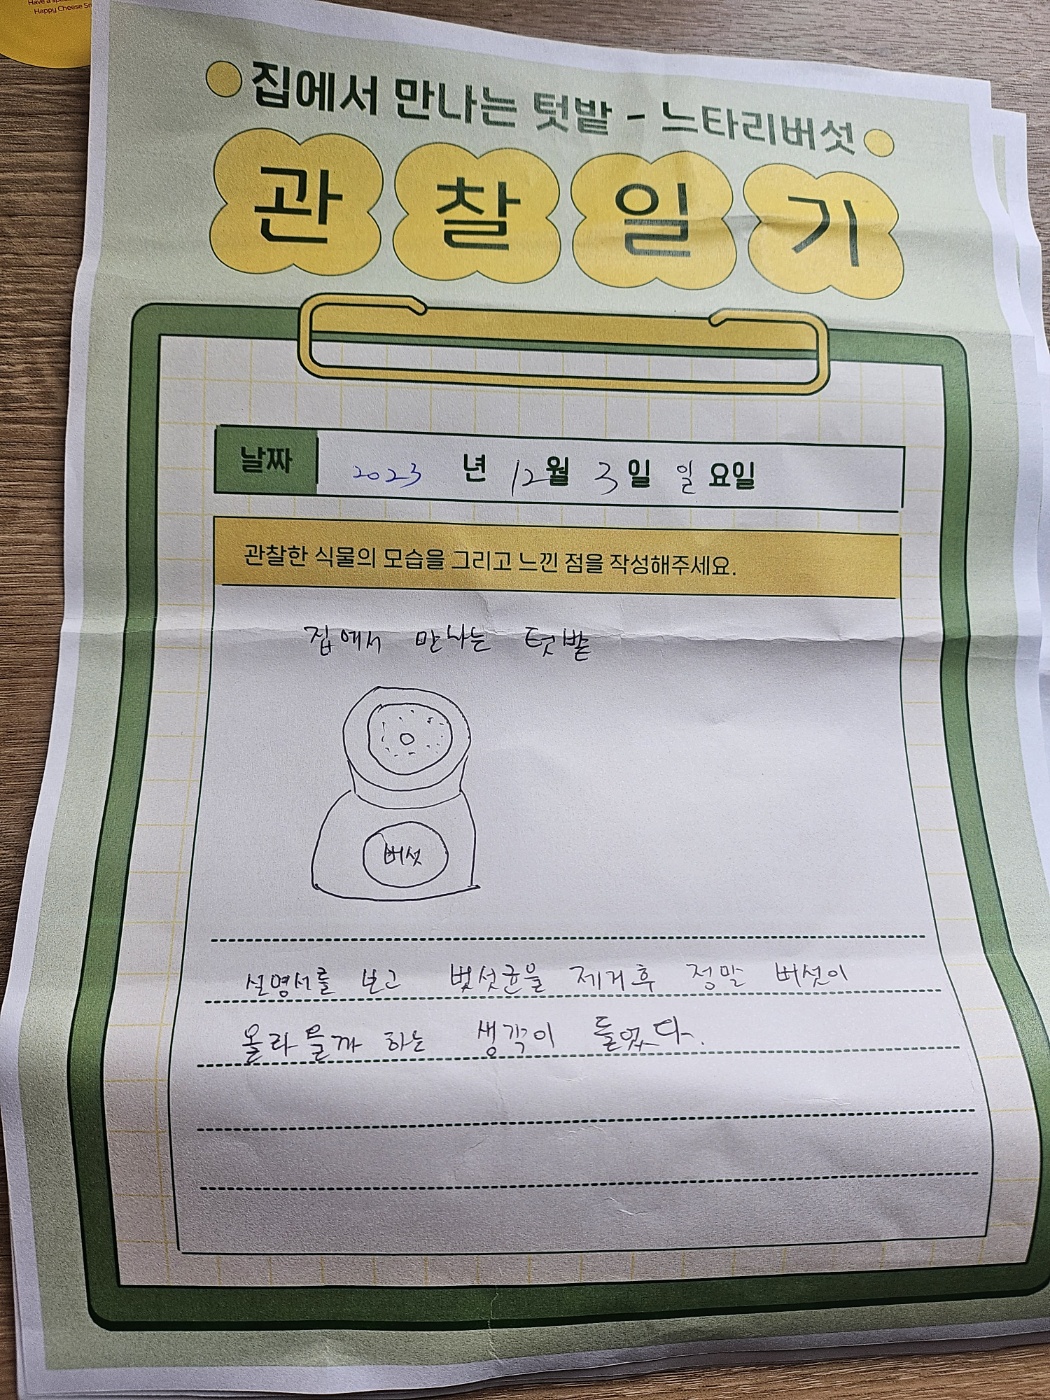 Happy Cheese
집에서 만나는 텃밭 - 느타리버섯
관찰일기
날짜 2023 년 12월 3일 일요일
관찰한 식물의 모습을 그리고 느낀 점을 작성해주세요.
집에서 만나는 텃밭
버섯
설명서를 보고 벗섯균을 제거후 정말 버섯이
올라올까 하는 생각이 들었다.